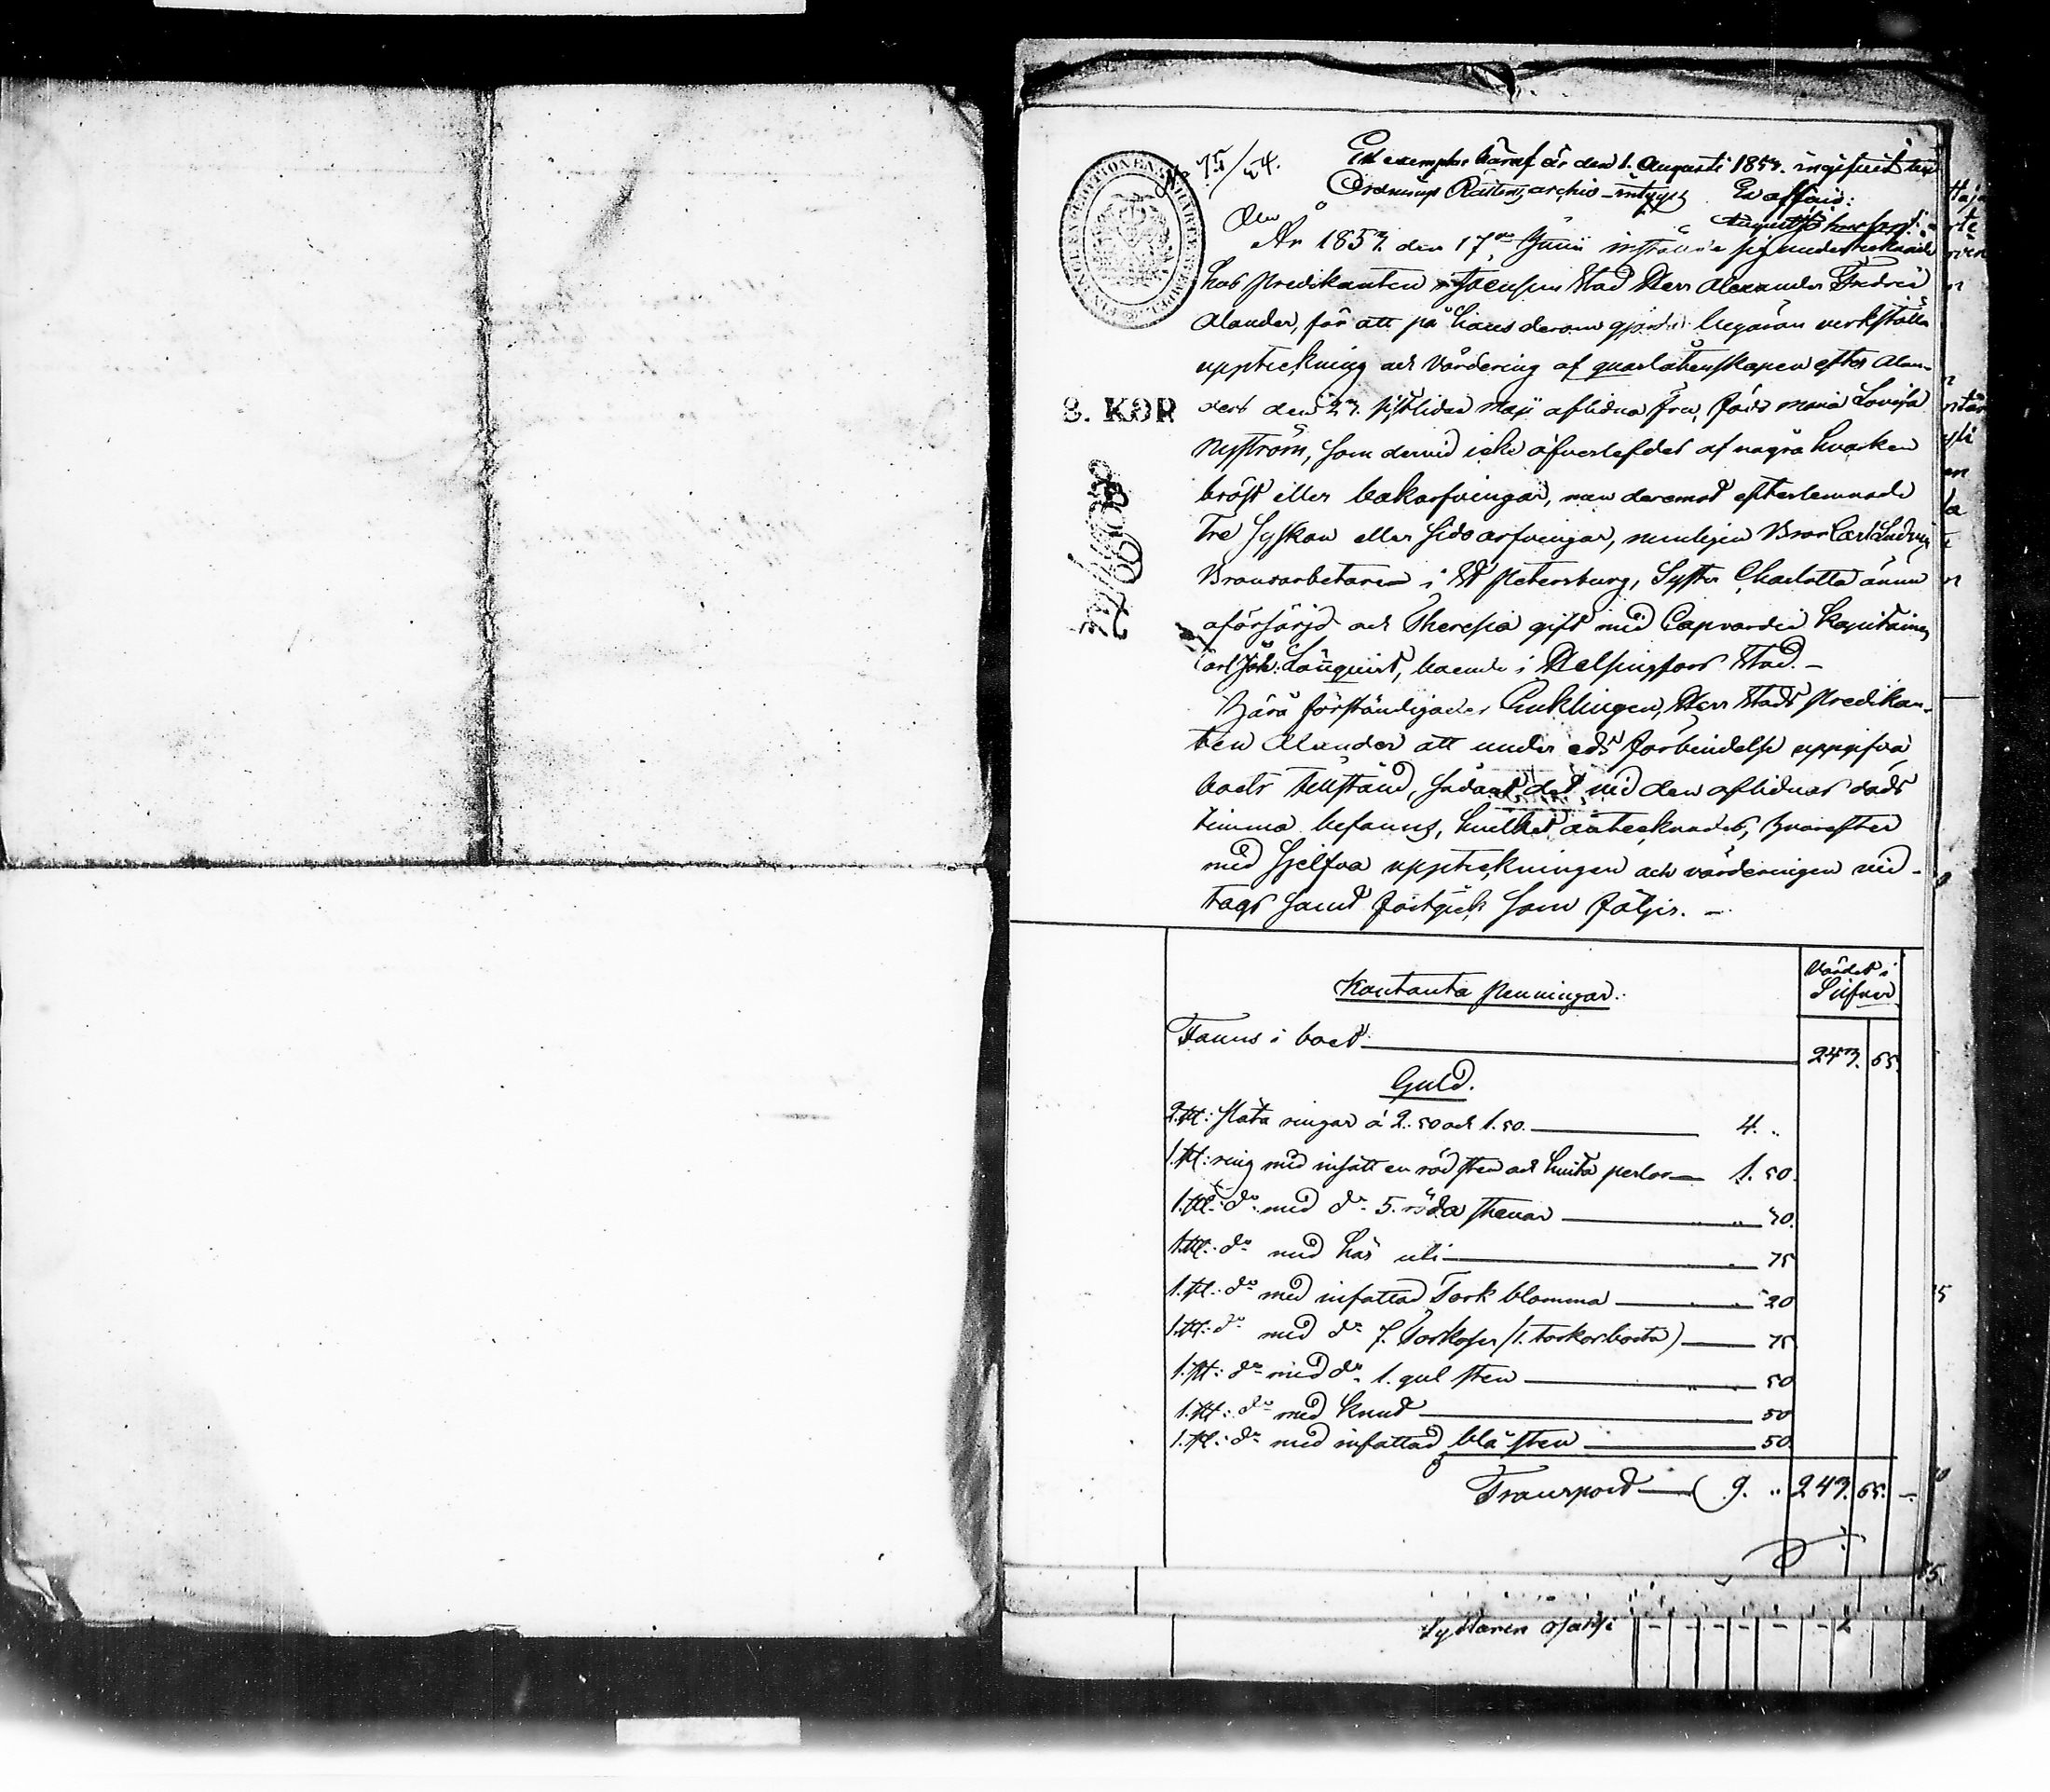 No 75/54.
Ett exemplar häraf är den 1. Augusti 1857. ingifvet till
Ordnings Rättens archiv – intygar Ex officio:
År 1857. den 17de Junii inställde sig undertecknade
hos Predikanten i Joensuu Stad Herr Alexander Fredric
Alander, för att på hans derom gjorde begäran verkställa
uppteckning och värdering af quarlåtenskapen efter Alan-
ders den 27. sistlidne Maji aflidna Fru, född Maria Lovisa
Nyström, som dervid icke öfverlefdes af några hvarken
bröst eller bakarfvingar, men deremot efterlemnade
Tre Syskon eller Sidoarfvingar, nemligen Bror Carl Ludvig
Bronsarbetaren i St Petersburg, Syster Charlotta ännu
oförsörjd och Theresia gift med Capvardie Kapitainen
Carl Joh: Lönqvist, boende i Helsingfors Stad. –
Härå förständigades Enklingen, Herr Stads Predikan-
ten Alander att under eds förbindelse uppgifva
boets tillstånd, sådant det vid den aflidnas döds
timma befanns, hvilket antecknades, hvarefter
med sjelfva uppteckningen och värderingen vid-
togs samt fortgick som följer. –
8. KOP
Värdet i
Silfver
Kontanta Penningar:
Fanns i boet 247. 65.
Guld.
2. st: släta ringar à 2. 50 och 1. 50. 4. ..
1. st: ring med insatt en röd sten och hvita perlor 1. 50.
1. st: do med do 5. röda stenar .. .. 30.
1. st: do med hår uti .. 75
1. st: do med infattad Tork blomma .. .. 20
1. st: do med do 7. Torkoser (1. torkos borta) 75
1. st: do med do 1. gul sten .. .. 50
1. st: do med knut 50
1. st: do med infattad blå sten 50.
Transport 9. .. 247. 65. –